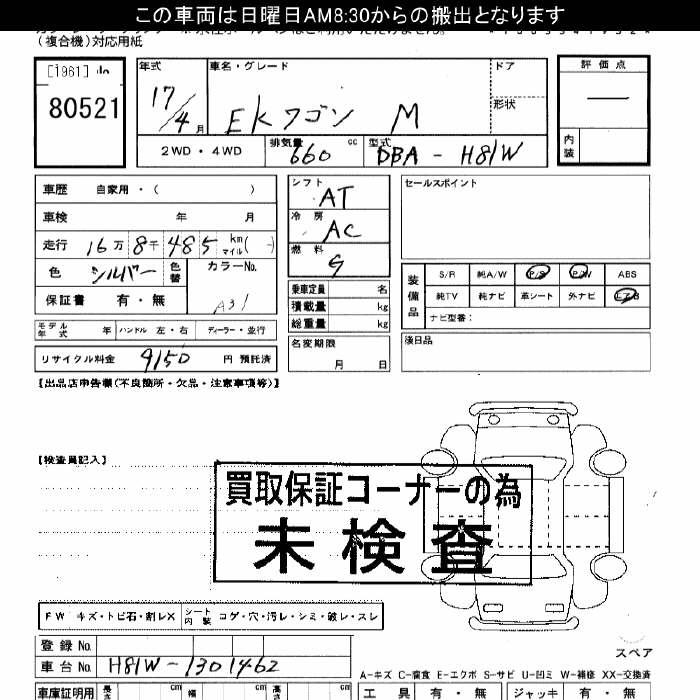 この車両は日曜日AM8:30からの搬出となります
(複合機)対応用紙
[1961]
80521
年式 車名・グレード ドア
17/4月 EKワゴン M 形状
2WD・4WD 排気量 660 cc 型式 DBA - H81W
評価点
—
内装
車歴 自家用・( )
車検 年 月
走行 16万8千485 km マイル( - )
色 シルバー 色替 カラーNo.
保証書 有・無 A31
モデル年式 年 ハンドル 左・右 ディーラー・並行
リサイクル料金 9150 円 預託済
シフト AT
冷房 AC
燃料 G
乗車定員 名
積載量 kg
総重量 kg
名変期限
月 日
セールスポイント
装備品
S/R 純A/W P/S P/W ABS
純TV 純ナビ 革シート 外ナビ エアB
ナビ型番:
後日品
【出品店申告欄(不良箇所・欠品・注意事項等)】
【検査員記入】
買取保証コーナーの為
未検査
FW キズ・トビ石・割レX シート内装 コゲ・穴・汚レ・シミ・破レ・スレ
登録No.
車台No. H81W-1301462
スペア
A-キズ C-腐食 E-エクボ S-サビ U-凹ミ W-補修 XX-交換済
車庫証明用 長さ cm 幅 cm 高さ cm
工具 有・無 ジャッキ 有・無